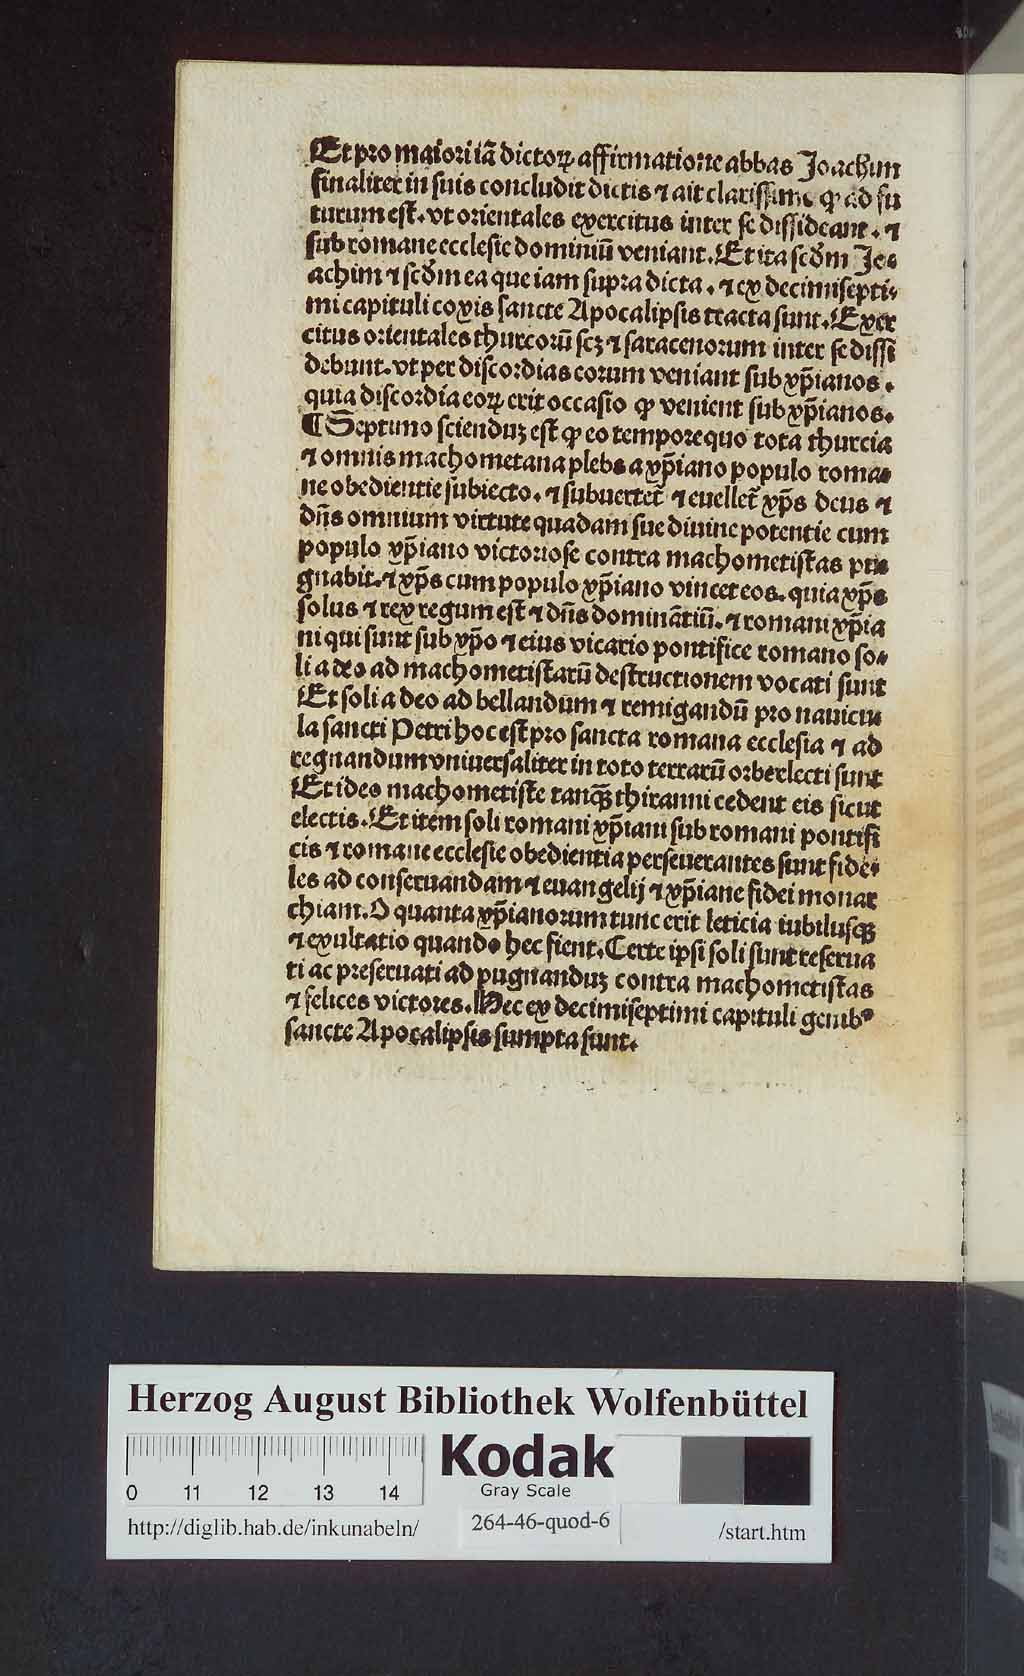 Et pro maiori iã dictoꝝ affirmatione abbas Joachim
finaliter in suis concludit dictis ⁊ ait clarissime ꝙ ad fu
turum est. vt orientales exercitus inter se dissideant. ⁊
sub romane ecclesie dominiũ veniant. Et ita scďm Jo-
achim ⁊ scďm ea que iam supra dicta. ⁊ ex decimisepti-
mi capituli coxis sancte Apocalipsis tracta sunt. Exer
citus orientales thurcorũ scꝫ ⁊ saracenorum inter se dissi
debunt. vt per discordias eorum veniant sub xp̃ianos.
quia discordia eoꝝ erit occasio ꝙ venient sub xp̃ianos.
¶ Septimo scienduꝫ est ꝙ eo tempore quo tota thurcia
⁊ omnis machometana plebs a xp̃iano populo roma-
ne obedientie subiecto. ⁊ subuertet̃ ⁊ euellet̃ xp̃s deus ⁊
dñs omnium virtute quadam sue diuine potentie cum
populo xp̃iano victoriose contra machometistas pu-
gnabit. ⁊ xp̃s cum populo xp̃iano vincet eos. quia xp̃s
solus ⁊ rex regum est ⁊ dñs dominãtiũ. ⁊ romani xp̃ia
ni qui sunt sub xp̃o ⁊ eius vicario pontifice romano so-
li a deo ad machometistarũ destructionem vocati sunt
Et soli a deo ad bellandum ⁊ remigandũ pro nauicu
la sancti Petri hoc est pro sancta romana ecclesia ⁊ ad
regnandum vniuersaliter in toto terrarũ orbe electi sunt
Et ideo machometiste tanqꝫ̃ thiranni cedent eis sicut
electis. Et item soli romani xp̃iani sub romani pontifi
cis ⁊ romane ecclesie obedientia perseuerantes sunt fide-
les ad conseruandam ⁊ euangelij ⁊ xp̃iane fidei monar
chiam. O quanta xp̃ianorum tunc erit leticia iubilusqꝫ
⁊ exultatio quando hec fient. Certe ipsi soli sunt reserua
ti ac preseruati ad pugnanduꝫ contra machometistas
⁊ felices victores. Hec ex decimiseptimi capituli gemibꝰ
sancte Apocalipsis sumpta sunt.
Herzog August Bibliothek Wolfenbüttel
0 11 12 13 14
Kodak
Gray Scale
http://diglib.hab.de/inkunabeln/
264-46-quod-6
/start.htm